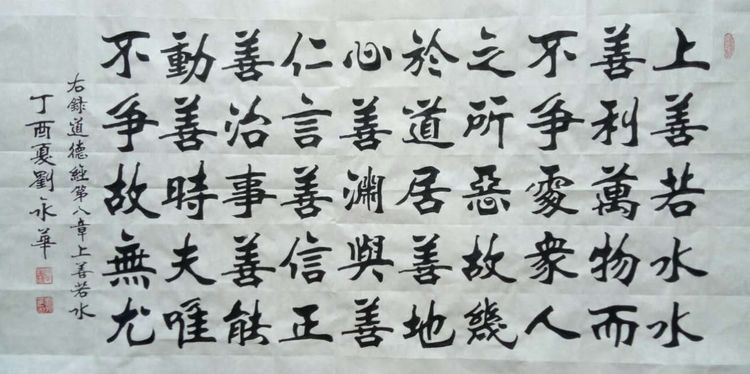 上善若水水
善利萬物而
不爭處衆人
之所惡故幾
於道居善地
心善淵與善
仁言善信正
善治事善能
動善時夫唯
不爭故無尤
右録道德經第八章上善若水
丁酉夏劉永華